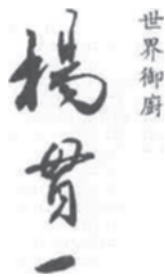 世界御廚
楊貫一